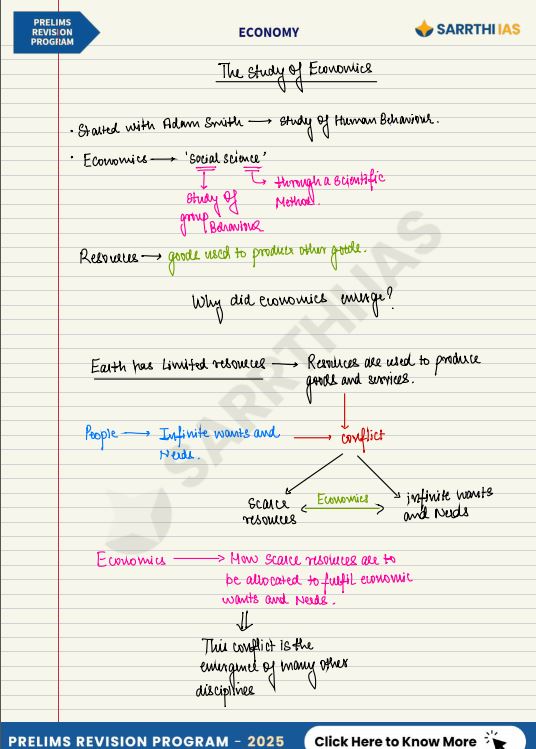 PRELIMS
REVISION
PROGRAM
ECONOMY
SARRTHI IAS
The Study of Economics
• Started with Adam Smith → Study of Human Behaviour.
• Economics → 'Social Science'
through a scientific
Method.
Study of
group Behaviour
Resources → goods used to produce other goods.
Why did economics emerge?
Earth has Limited resources → Resources are used to produce
goods and services.
People → Infinite wants and
Needs.
→ conflict
Scarce
resources
Economics
infinite wants
and Needs
Economics → How scarce resources are to
be allocated to fulfil economic
wants and Needs.
This conflict is the
emergence of many other
disciplines
SARRTHI IAS
PRELIMS REVISION PROGRAM - 2025
Click Here to Know More